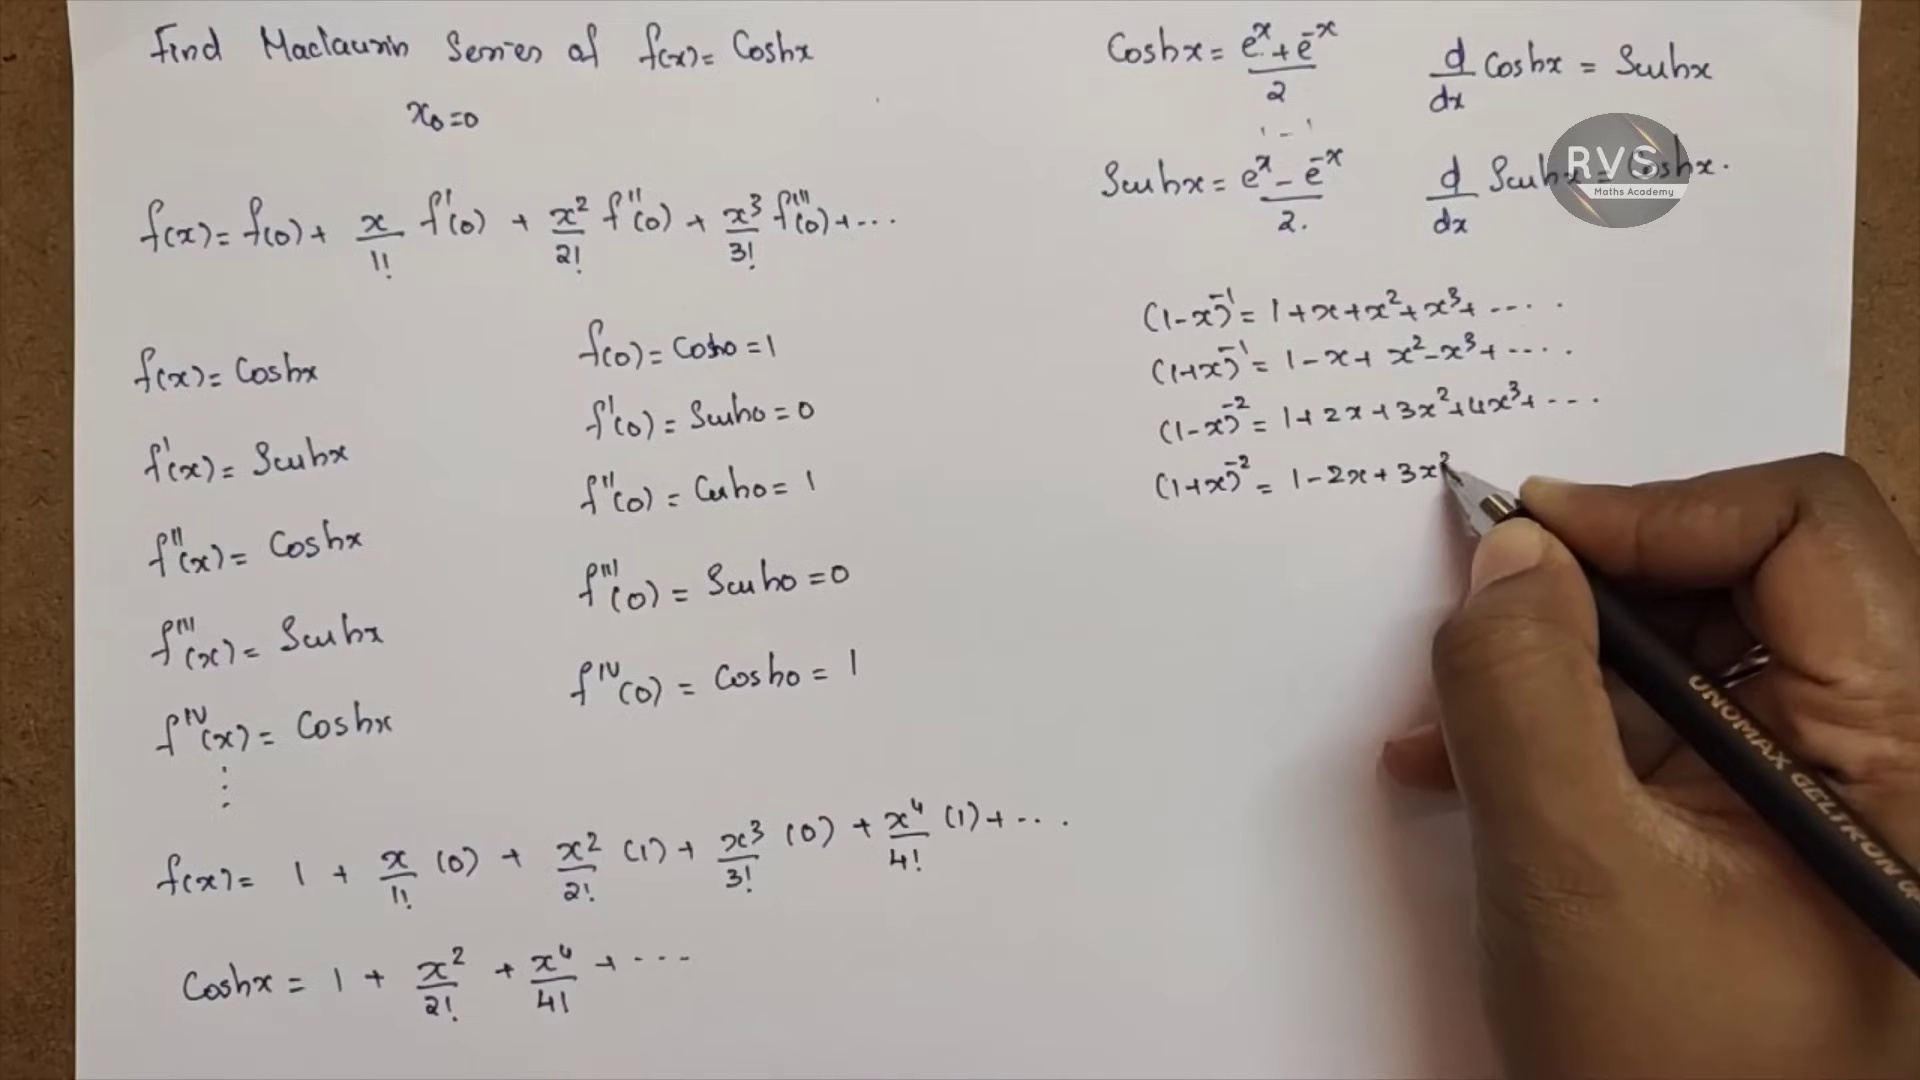 Find Maclaurin Series of f(x) = Coshx
x₀=0
f(x) = f(0) + x/1! f'(0) + x²/2! f''(0) + x³/3! f'''(0) + ...
f(x) = Coshx
f'(x) = Sinhx
f''(x) = Coshx
f'''(x) = Sinhx
f^IV(x) = Coshx
⋮
f(0) = Cosh0 = 1
f'(0) = Sinh0 = 0
f''(0) = Cosh0 = 1
f'''(0) = Sinh0 = 0
f^IV(0) = Cosh0 = 1
f(x) = 1 + x/1! (0) + x²/2! (1) + x³/3! (0) + x⁴/4! (1) + ...
Coshx = 1 + x²/2! + x⁴/4! + ...
Coshx = (e^x + e^-x)/2
d/dx Coshx = Sinhx
Sinhx = (e^x - e^-x)/2.
d/dx Sinhx = Coshx.
RVS
Maths Academy
(1-x)^-1 = 1+x+x²+x³+ ....
(1+x)^-1 = 1-x+x²-x³+ ....
(1-x)^-2 = 1+2x+3x²+4x³+ ...
(1+x)^-2 = 1-2x+3x²
UNOMAX GELTRON